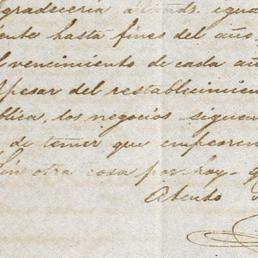 gradeceria a Uds. igua
ente hasta fines del año
l vencimiento de cada añ
pesar del restablecimien
blica, los negocios siguen
de temer que empeoren
Sin otra cosa por hoy, q
Atento